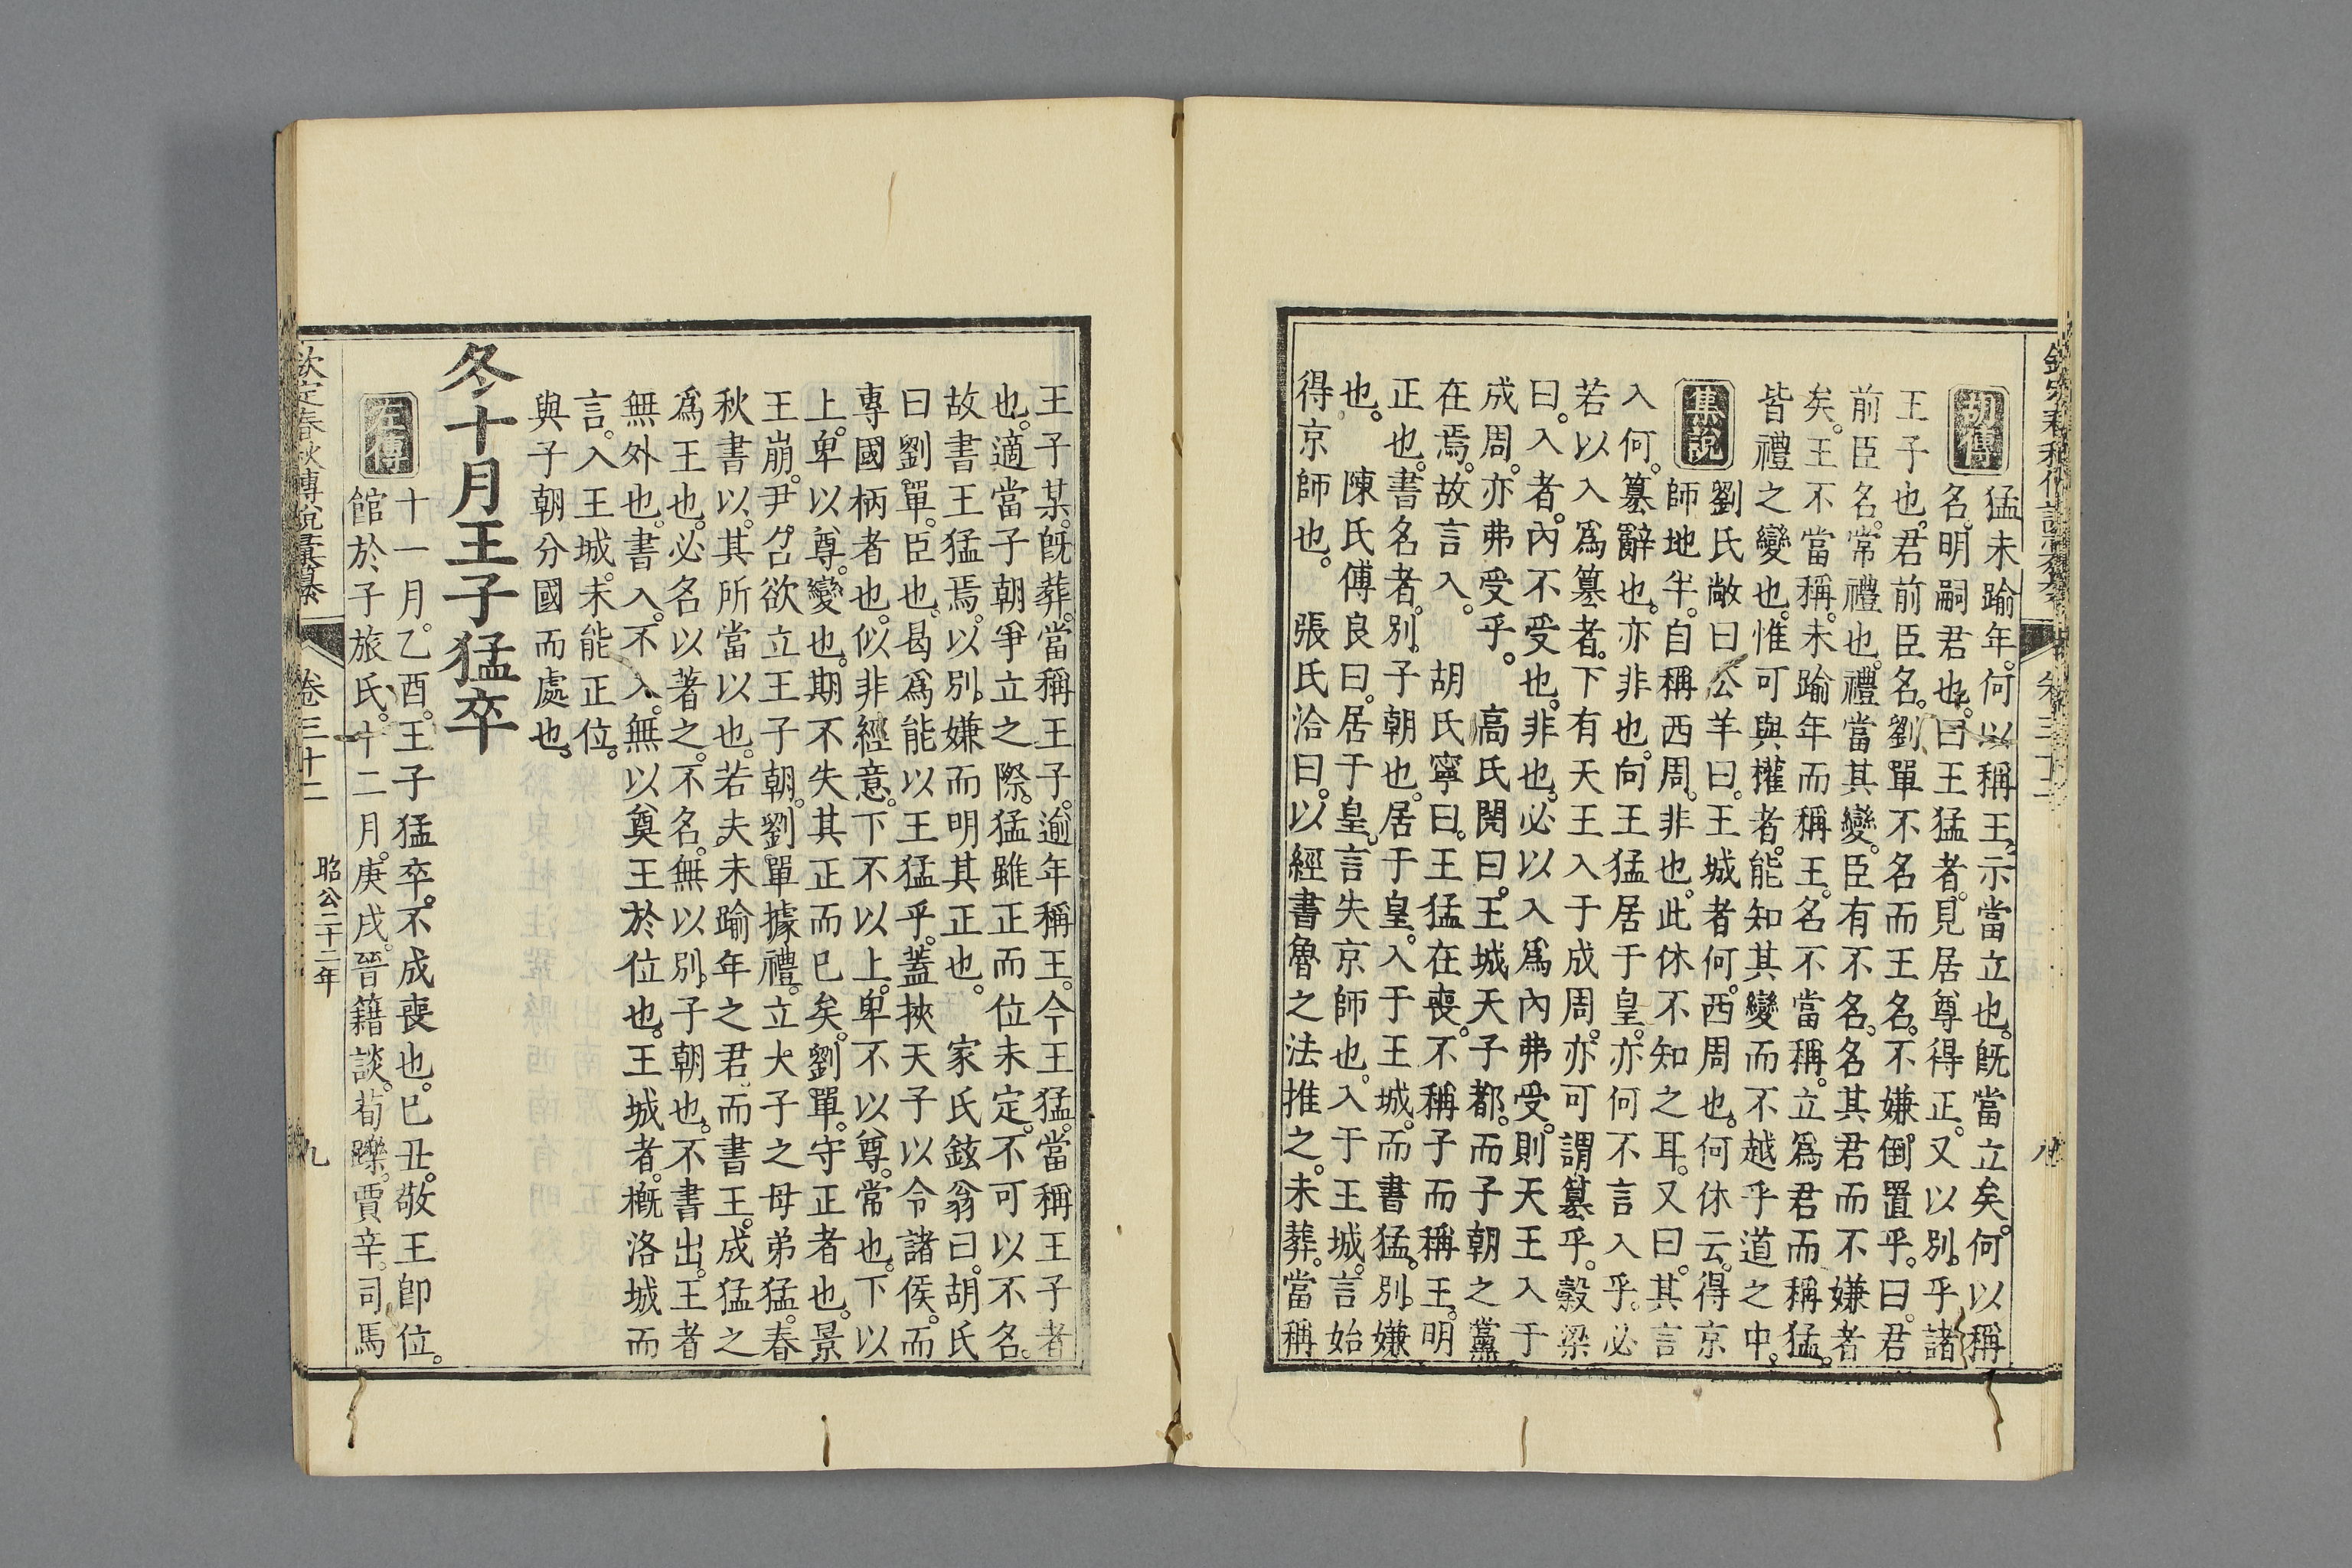 胡傳
猛未踰年。何以稱王。示當立也。旣當立矣。何以稱
名。明嗣君也。曰王猛者。見居尊得正。又以別乎諸
王子也。君前臣名。劉單不名而王名。不嫌倒置乎。曰。君
前臣名。常禮也。禮當其變。臣有不名。名其君而不嫌者
矣。王不當稱。未踰年而稱王。名不當稱。立爲君而稱猛。
皆禮之變也。惟可與權者。能知其變而不越乎道之中。
集說
劉氏敞曰。公羊曰。王城者何。西周也。何休云。得京
師地半。自稱西周。非也。此休不知之耳。又曰。其言
入何。簒辭也。亦非也。向王猛居于皇。亦何不言入乎。必
若以入爲簒者。下有天王入于成周。亦可謂簒乎。穀梁
曰。入者。內不受也。非也。必以入爲內弗受。則天王入于
成周。亦弗受乎。　高氏閌曰。王城天子都。而子朝之黨
在焉。故言入。　胡氏寧曰。王猛在喪。不稱子而稱王。明
正也。書名者。別子朝也。居于皇。入于王城。而書猛。別嫌
也。　陳氏傅良曰。居于皇。言失京師也。入于王城。言始
得京師也。　張氏洽曰。以經書魯之法推之。未葬。當稱
王子某。旣葬。當稱王子。逾年稱王。今王猛。當稱王子者
也。適當子朝爭立之際。猛雖正而位未定。不可以不名。
故書王猛焉。以別嫌而明其正也。　家氏鉉翁曰。胡氏
曰。劉單。臣也。曷爲能以王猛乎。蓋挾天子以令諸侯。而
專國柄者也。似非經意。下不以上。卑不以尊。常也。下以
上。卑以尊。變也。期不失其正而已矣。劉單。守正者也。景
王崩。尹召欲立王子朝。劉單據禮。立大子之母弟猛。春
秋書以。其所當以也。若夫未踰年之君。而書王。成猛之
爲王也。必名以著之。不名。無以別子朝也。不書出。王者
無外也。書入。不入。無以奠王於位也。王城者。槪洛城而
言。入王城。未能正位。
與子朝分國而處也。
冬十月王子猛卒
左傳
十一月。乙酉。王子猛卒。不成喪也。已丑。敬王卽位。
館於子旅氏。十二月。庚戌。晉籍談。荀躒。賈辛。司馬
欽定春秋傳說彙纂　卷三十二　昭公二十二年　九